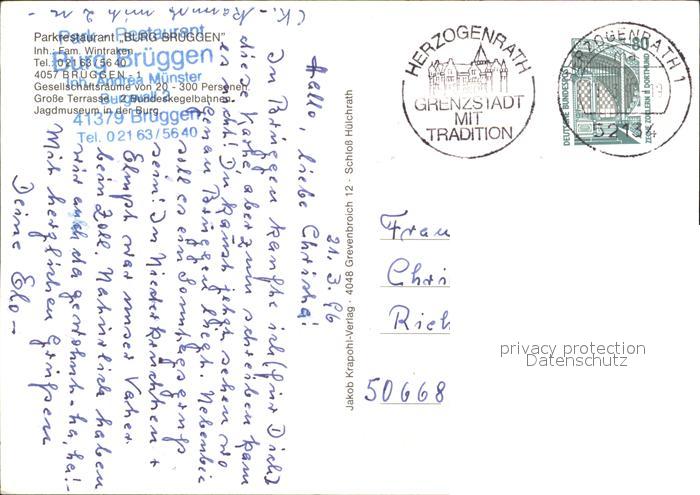 Parkrestaurant „BURG BRÜGGEN"
Inh.: Fam. Wintraken
Tel.: 0 21 63 / 56 40
4057 BRÜGGEN - 1
Gesellschaftsräume von 20 - 300 Personen
Große Terrasse - 2 Bundeskegelbahnen
Jagdmuseum in der Burg
Park - Restaurant
Burg Brüggen
Inh. Andrea Münster
41379 Brüggen
Tel. 0 21 63 / 56 40
21.3.96
Hallo, liebe Christa!
In Brüggen kaufte ich (für Dich)
die Karte, aber zum schreiben kam
es nicht! Du kannst jetzt sehen wo
genau Brüggen liegt. Nebenbei
soll es ein Sonntagsgruß
sein! In Niederkrüchten +
Elmpt war unser Vater
beim Zoll. Natürlich haben
wir auch da gewohnt - ha, ha! -
Mit herzlichen Grüßen
Deine
Jakob Krapohl-Verlag · 4048 Grevenbroich 12 · Schloß Hülchrath
HERZOGENRATH
GRENZSTADT
MIT
TRADITION
HERZOGENRATH 1
52134
80
DEUTSCHE BUNDESPOST
ZECHE ZOLLERN II DORTMUND
Frau
Chri
Rich
50668
privacy protection
Datenschutz